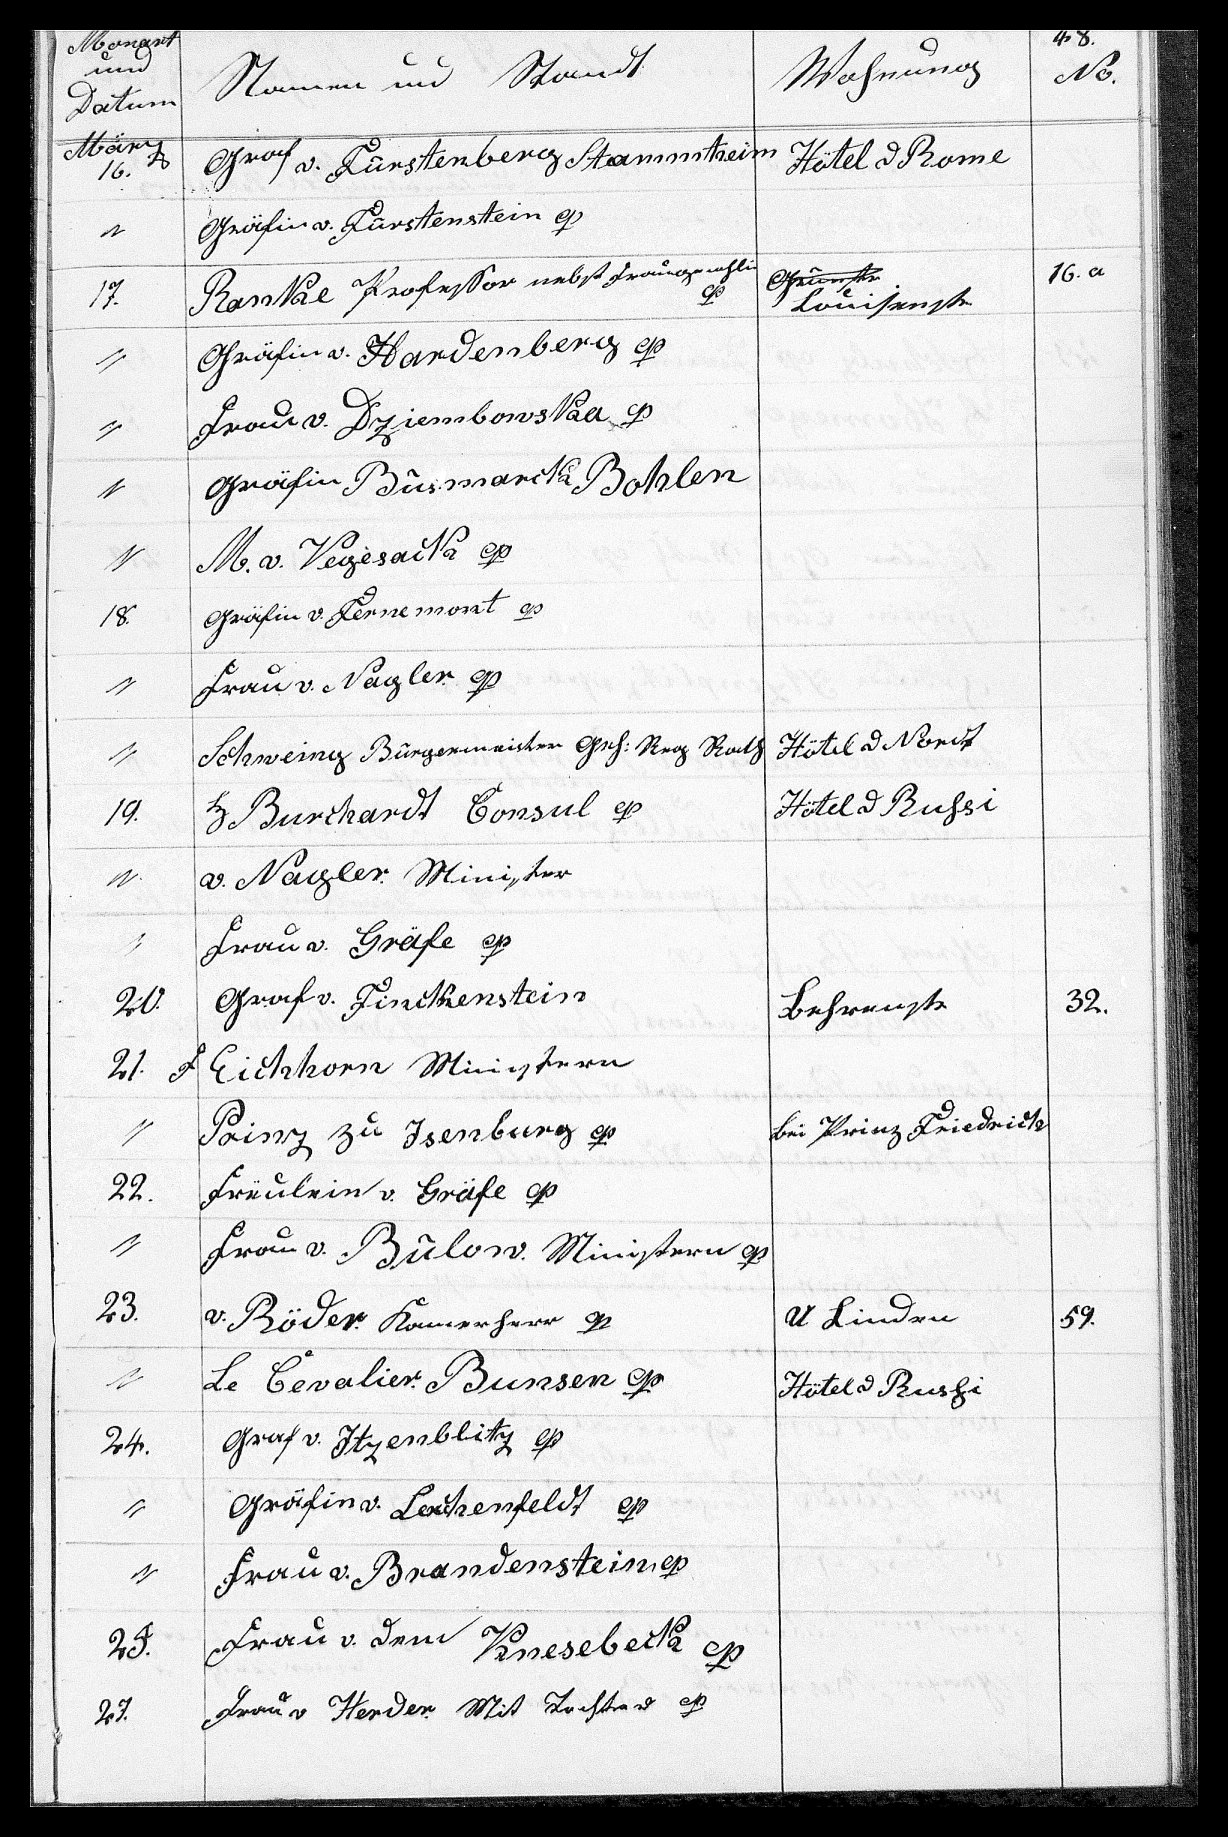 48.
Monart und Datum Namen und Standt Wohnung No.
März 16. Graf v. Fürstenberg Stammheim Hôtel d Rome
" Gräfin v. Fürstenstein
17. Ranke Professor nebst Frau gemahlin Louisenstr 16. a
" Gräfin v. Hardenberg
" Frau v. Dziembowska
" Gräfin Bismarck Bohlen
" M. v. Vegesack
18. Gräfin v. Fernemont
" Frau v. Nagler
" Schweing Bürgermeister Geh: Reg Rath Hôtel d Nordt
19. Burchardt Consul Hôtel d Russi
" v. Nagler Minister
" Frau v. Gräfe
20. Graf v. Finckenstein Behrenstr 32.
21. F Eichhorn Ministern
" Prinz zu Isenburg bei Prinz Friedrich
22. Freulein v. Gräfe
" Frau v. Bülow. Ministern
23. v. Röder Kamerherr U Linden 59.
" Le Cevalier Bunsen Hôtel d Russi
24. Graf v. Itzenblitz
" Gräfin v. Lerchenfeldt
" Frau v. Brandenstein
25. Frau v. dem Knesebeck
27. Frau v Herder Mit Tochter